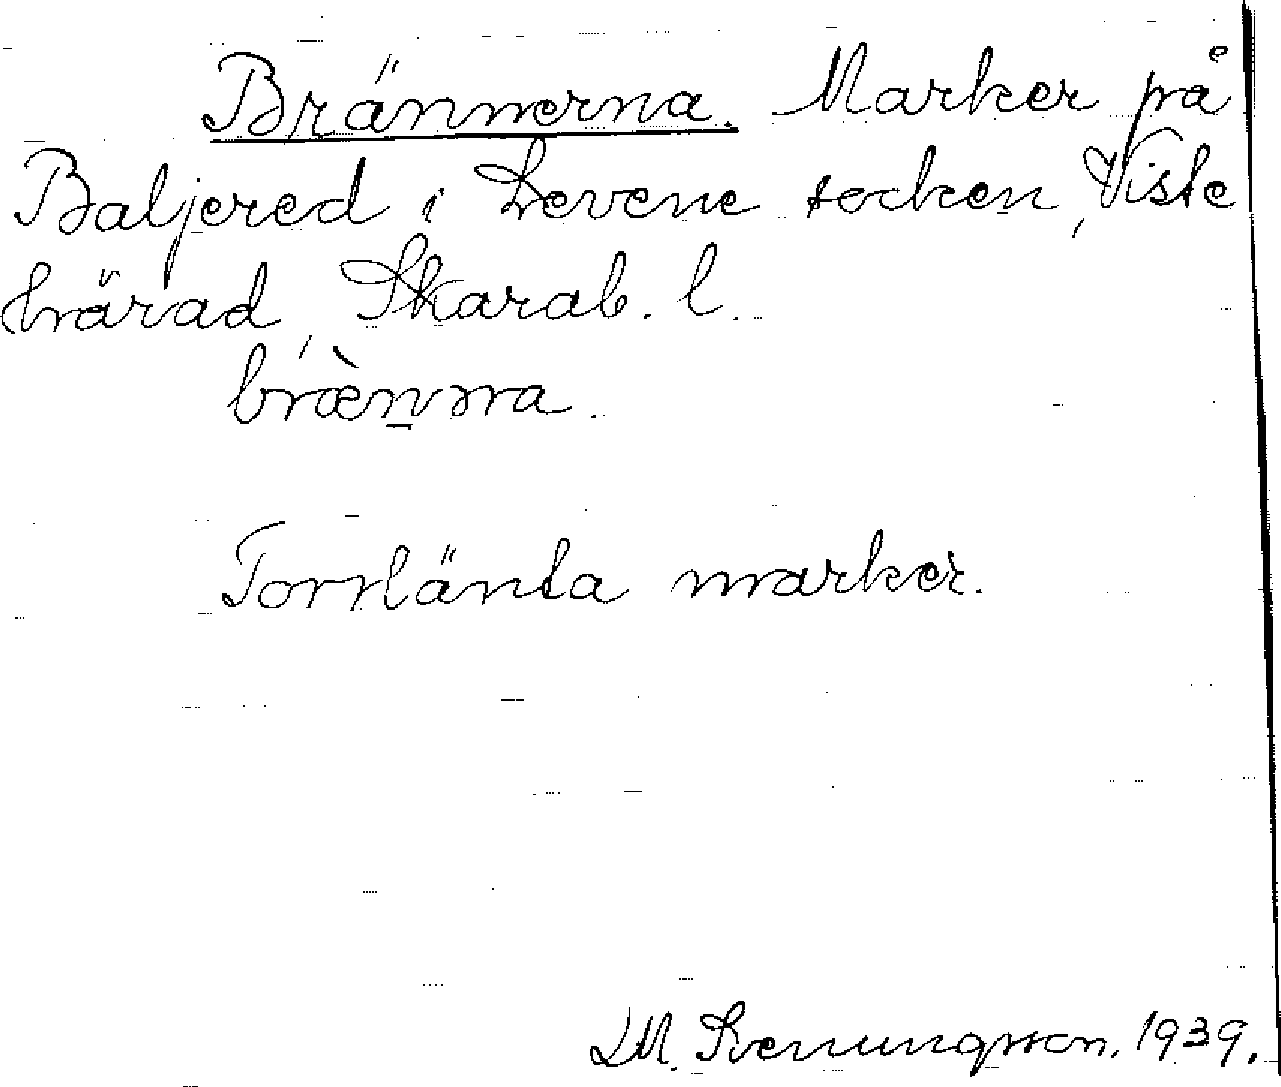 Brännerna. Marker på
Baljered i Levene socken, Viste
härad, Skarab. l.
bræ̀nn̠a.
Torrlänta marker.
LM. Svenungsson. 1939.